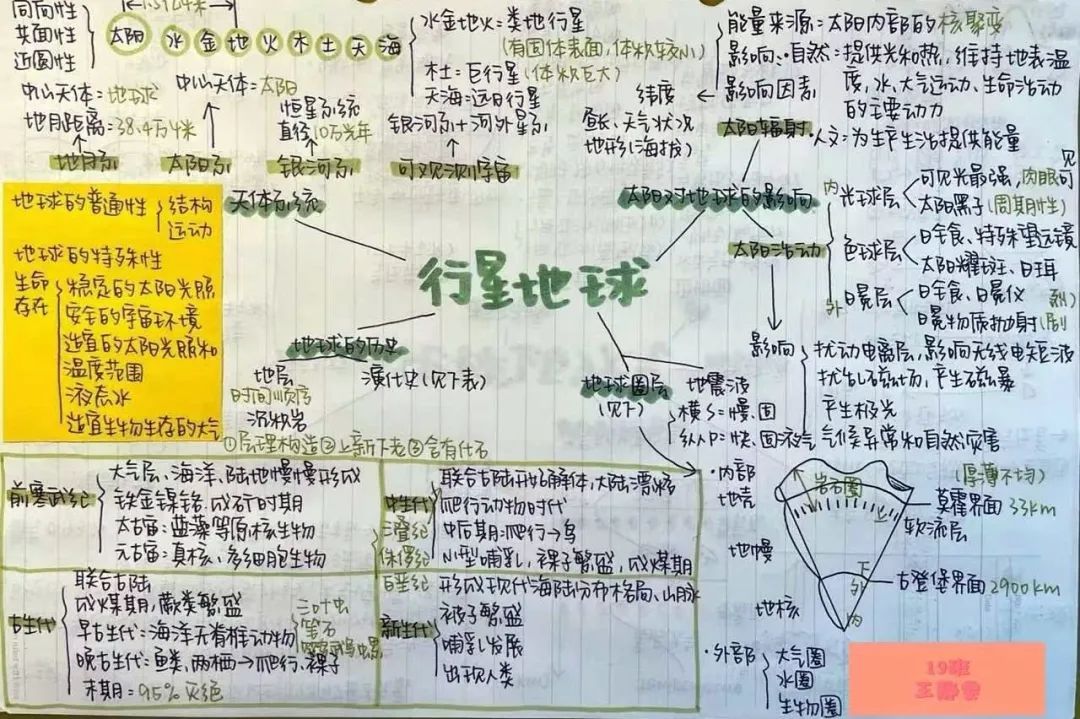 同向性
共面性
近圆性
太阳 水金地火木土天海
水金地火：类地行星
(有固体表面，体积较小)
木土：巨行星(体积巨大)
天海：远日行星
中心天体：地球
地月距离：38.4万千米
地月系
中心天体：太阳
太阳系
恒星系统
直径10万光年
银河系
银河系+河外星系
可观测宇宙
天体系统
能量来源：太阳内部的核聚变
影响：自然：提供光和热，维持地表温
度，水、大气运动、生命活动
的主要动力
人文：为生产生活提供能量
影响因素
纬度
昼长、天气状况
地形(海拔)
太阳辐射
太阳对地球的影响
太阳活动
内 光球层
可见光最强，肉眼可见
太阳黑子(周期性)
色球层
日全食、特殊望远镜
太阳耀斑、日珥
外 日冕层
日全食、日冕仪
日冕物质抛射
影响
扰动电离层，影响无线电短波
扰乱磁场，产生磁暴
产生极光
气候异常和自然灾害
地球的普通性
结构
运动
地球的特殊性
生命
存在
稳定的太阳光照
安全的宇宙环境
适宜的太阳光照和
温度范围
液态水
适宜生物生存的大气
行星地球
地球的历史
地层
时间顺序
沉积岩
①层理构造②上新下老③含有化石
演化史(见下表)
地球圈层
(见下)
地震波
横S：慢.固
纵P：快.固液气
前寒武纪
大气层、海洋、陆地慢慢形成
铁金镍铬.成矿时期
太古宙：蓝藻等原核生物
元古宙：真核、多细胞生物
古生代
联合古陆
成煤期，蕨类繁盛
早古生代：海洋无脊椎动物
三叶虫
笔石
鹦鹉螺
晚古生代：鱼类，两栖→爬行、裸子
末期：95%灭绝
中生代
三叠纪
侏罗纪
白垩纪
联合古陆开始解体，大陆漂移
爬行动物时代
中后期：爬行→鸟
小型哺乳，裸子繁盛，成煤期
新生代
形成现代海陆分布格局、山脉
被子繁盛
哺乳发展
出现人类
·内部
地壳
地幔
地核
岩石圈
(厚薄不均)
莫霍界面 33km
软流层
下
外
古登堡界面 2900km
内
·外部
大气圈
水圈
生物圈
19班